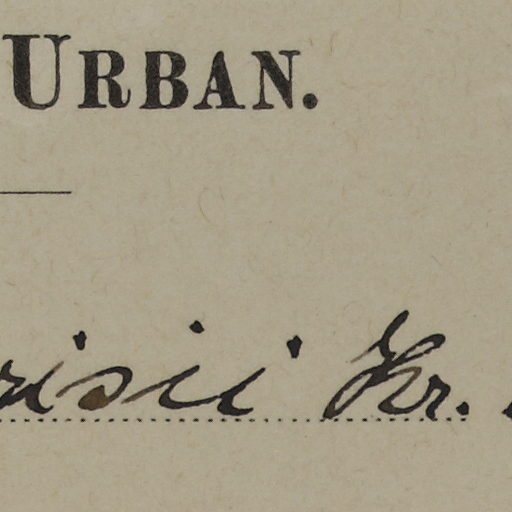 URBAN.
risii Kr.